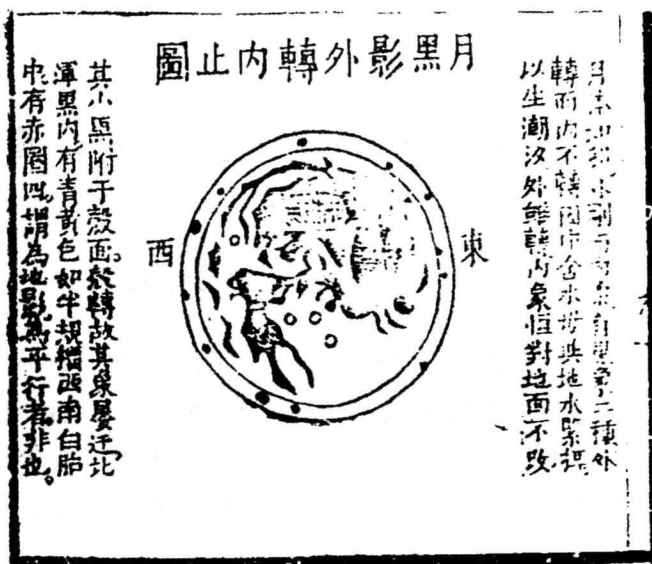 月黑影外轉內止圖
轉而內不轉因中含水母與地水緊攝
以生潮汐外雖轉內象恒對地面不改
東
西
其小黑附于殼面殼轉故其象屢迁北
渾黑內有青黃色如半規檣西南白胎
中有赤圈四謂為地影為平行者非也。